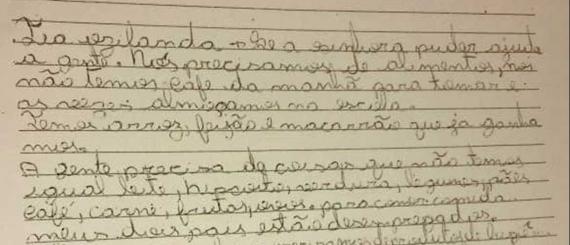 Tia ezilanda + Se a senhora puder ajuda
a gente. Nós precisamos de alimentos, nós
não temos café da manhã para tomar e
as vezes almoçamos na escola.
Temos arroz, feijão e macarrão que já ganha
mos.
A gente precisa de coisas que não temos
igual leite, biscoito, verdura, legumes, pães
café, carne, frutas, ovos. para comer comida.
meus dois pais estão desempregados.